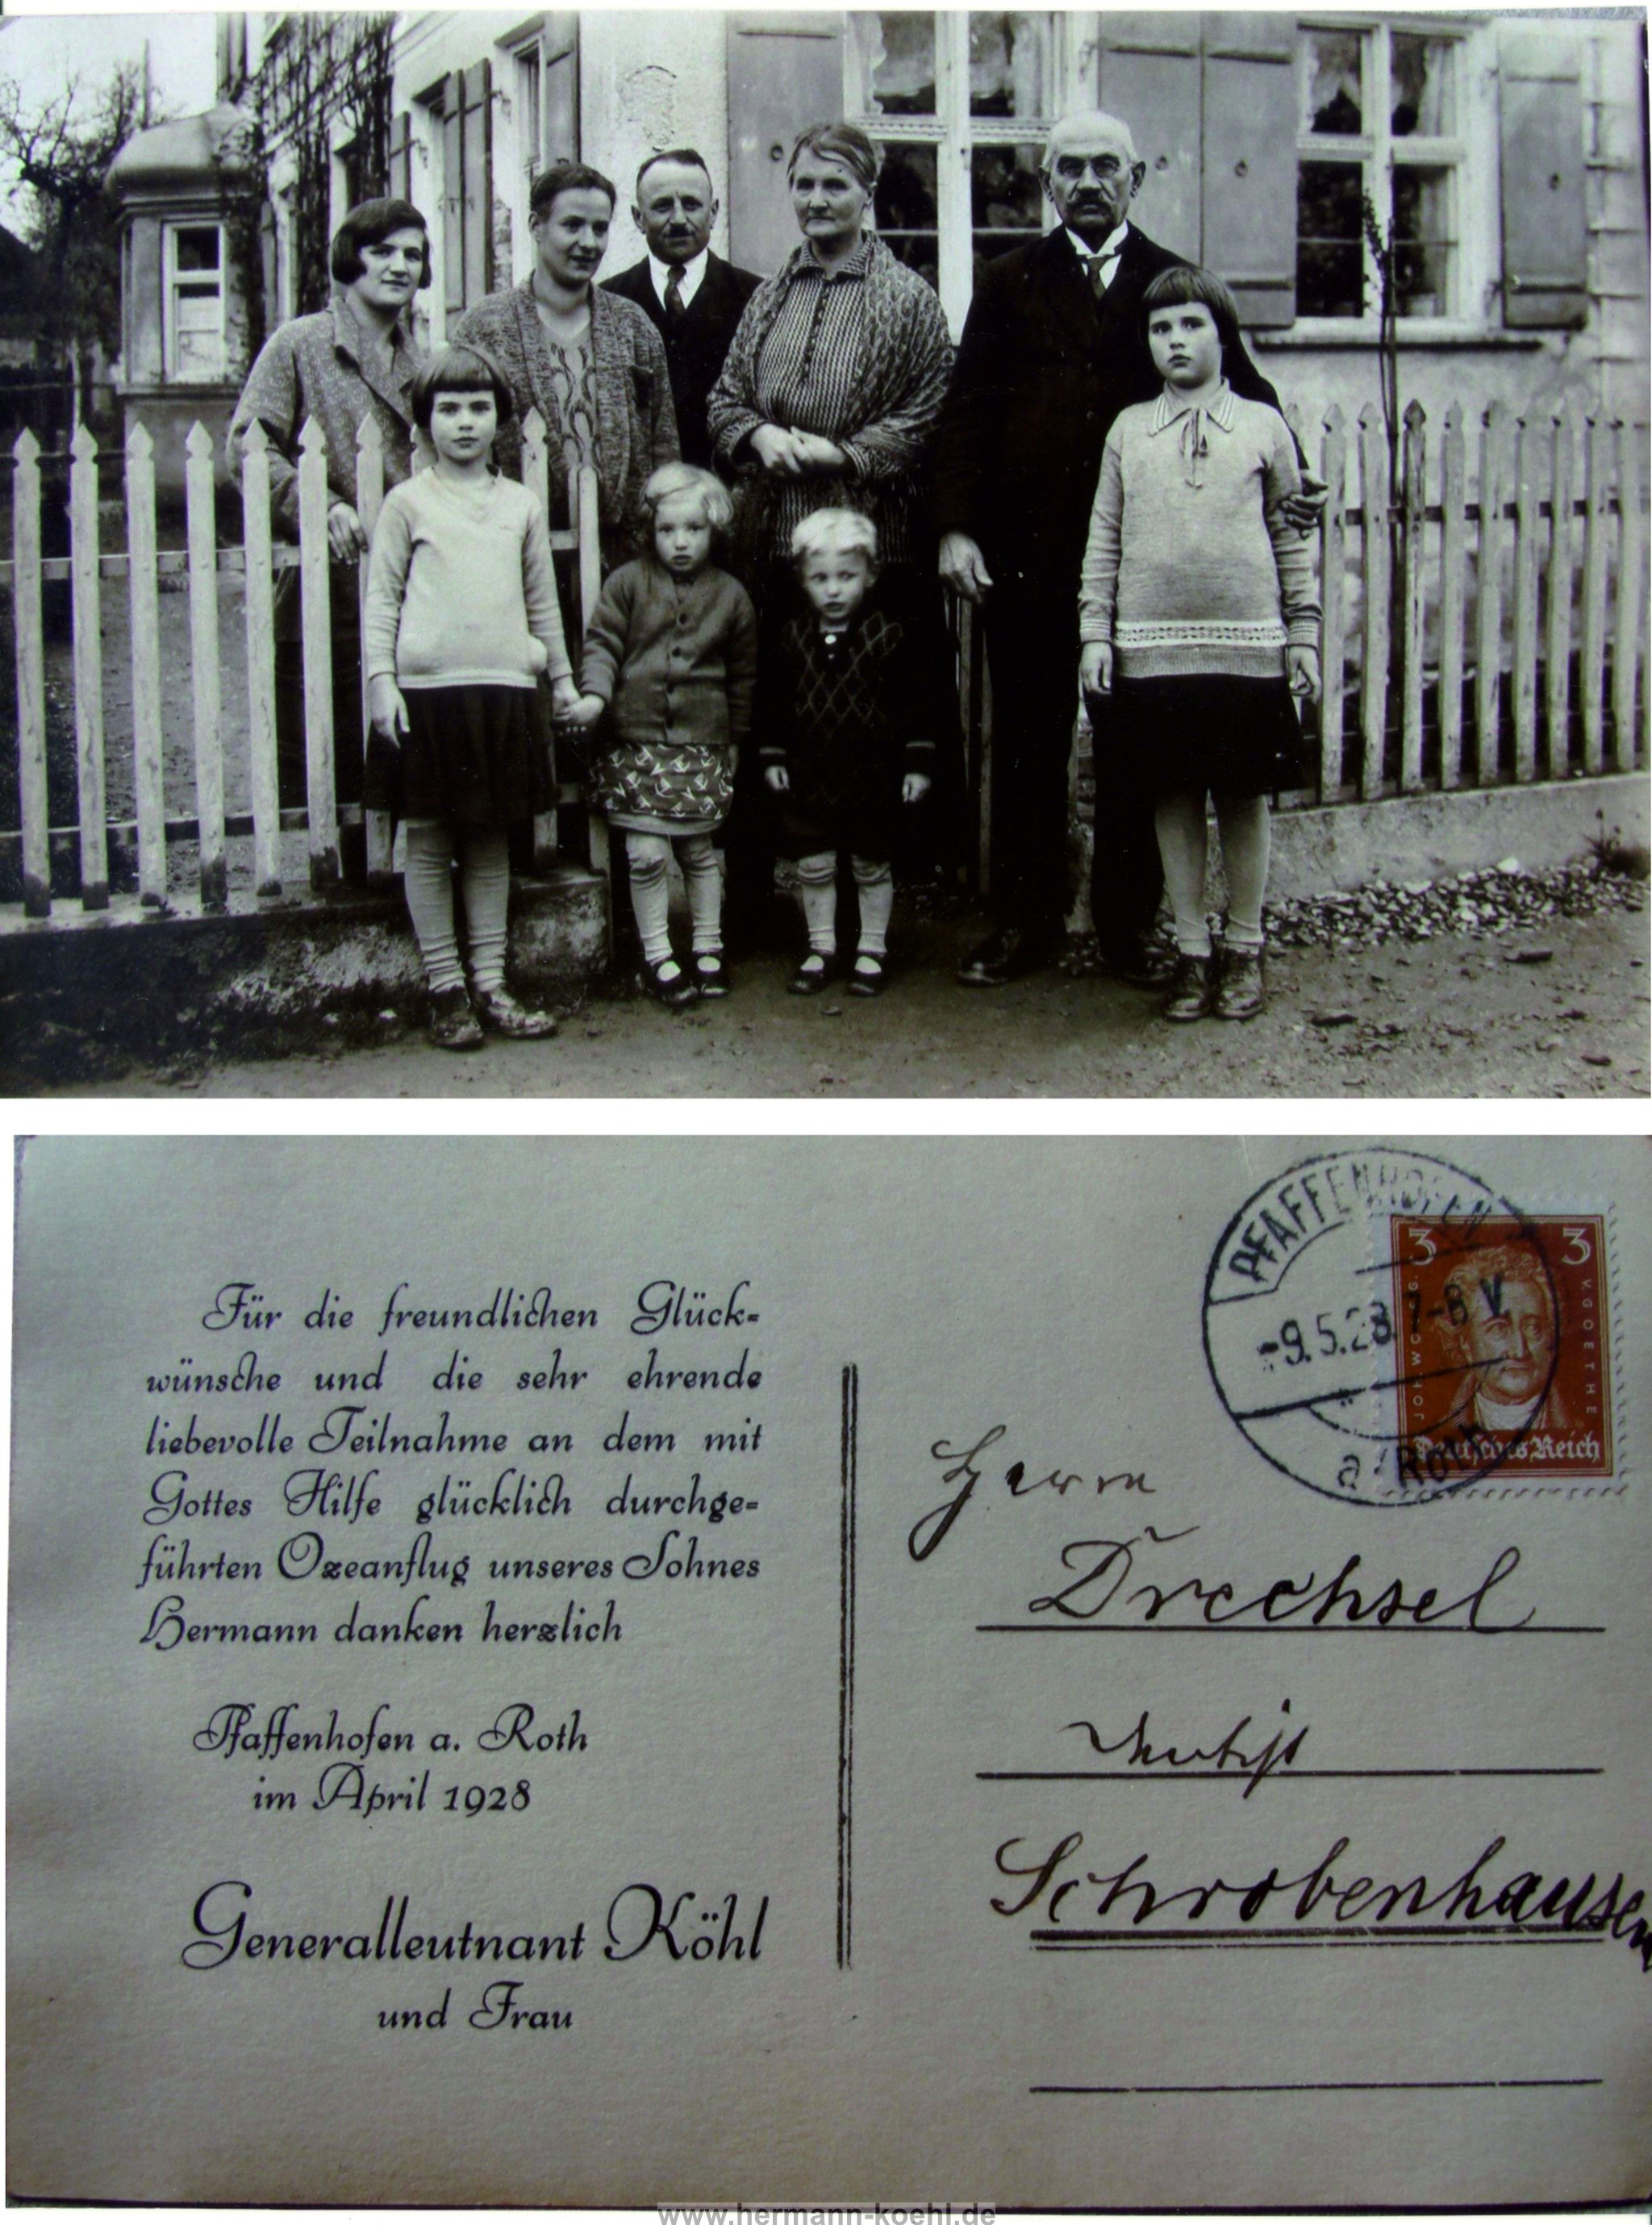 Für die freundlichen Glück=
wünsche und die sehr ehrende
liebevolle Teilnahme an dem mit
Gottes Hilfe glücklich durchge=
führten Ozeanflug unseres Sohnes
Hermann danken herzlich
Pfaffenhofen a. Roth
im April 1928
Generalleutnant Köhl
und Frau
PFAFFENHOFEN
-9.5.28. 7-8 V.
a. Roth
3 3
JOH. WOLFG. V. GOETHE
Deutsches Reich
Herrn
Drechsel
Schrobenhausen
www.hermann-koehl.de